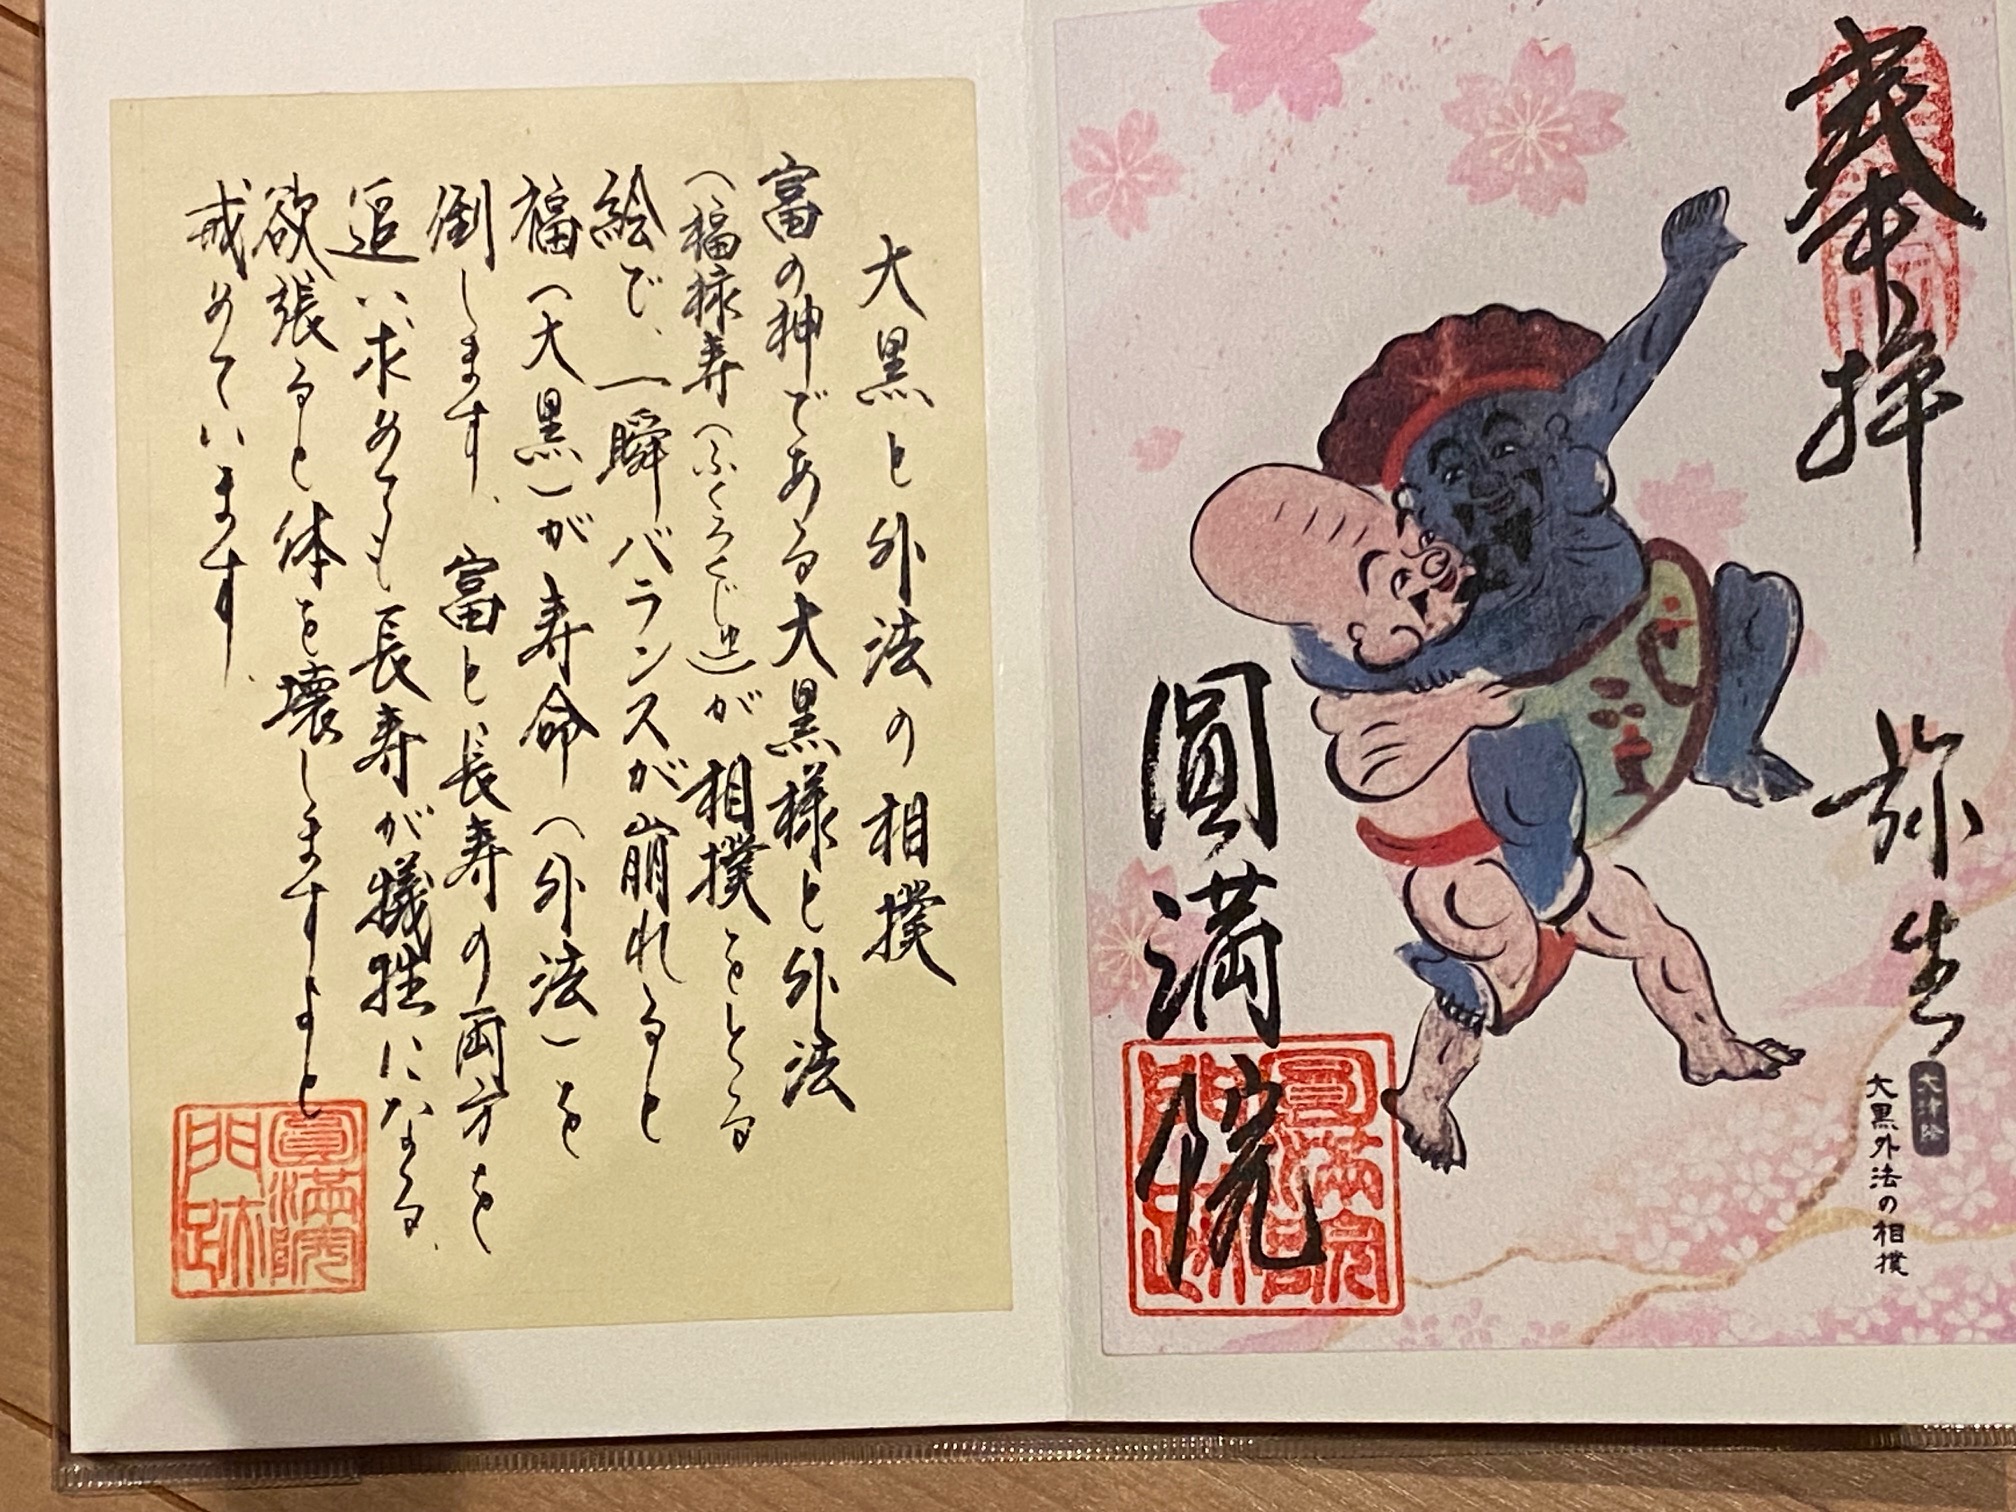 奉拝
弥生
大津絵
大黒外法の相撲
圓満院
圓満院
門跡
大黒と外法の相撲
富の神である大黒様と外法
（福禄寿（ふくろくじゅ）が相撲をとる
絵で、一瞬バランスが崩れると
福（大黒）が寿命（外法）を
倒します、富と長寿の両方を
追い求めても長寿が犠牲になる、
欲張ると体を壊しますよと
戒めています。
圓満院
門跡